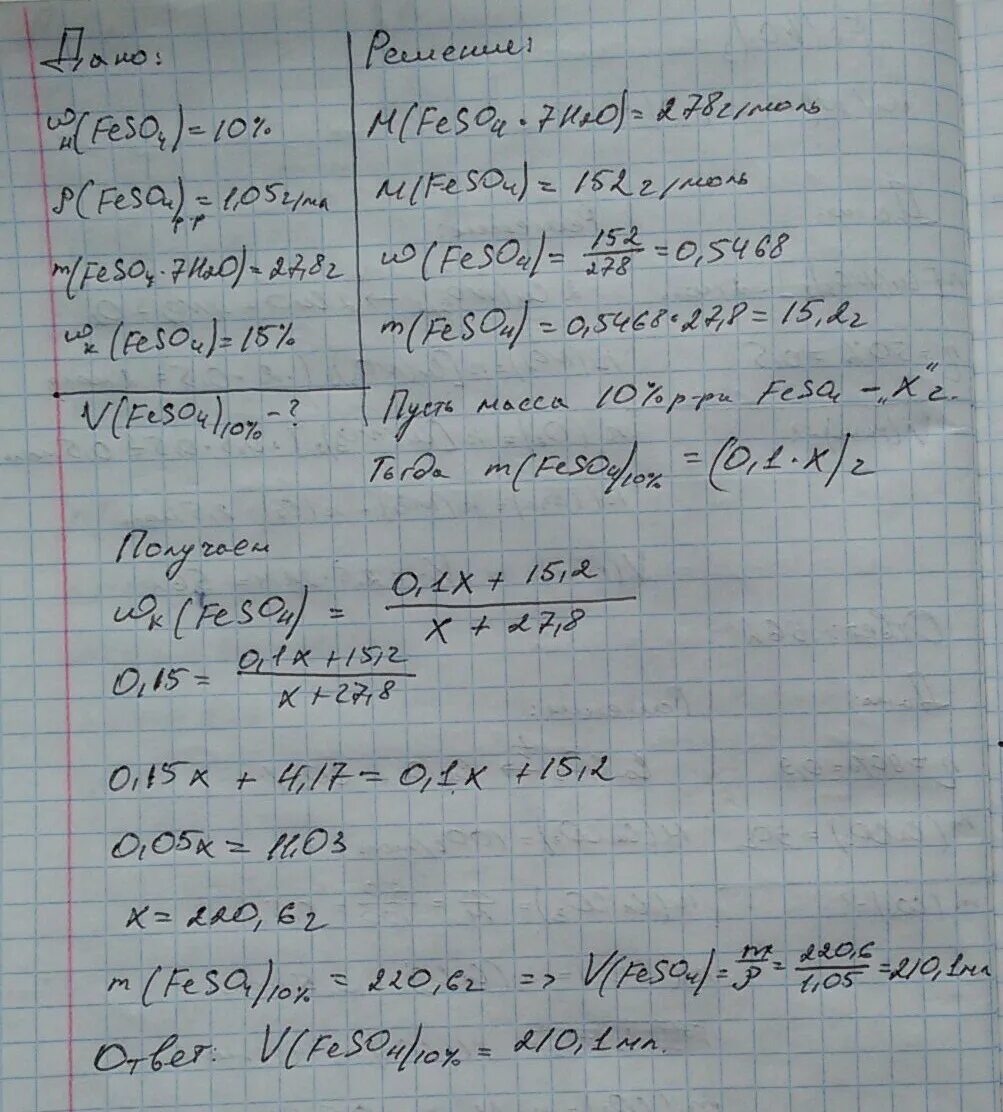 Дано:
ωн(FeSO4) = 10%
ρ(FeSO4)р-р = 1,05 г/мл
m(FeSO4·7H2O) = 27,8 г
ωк(FeSO4) = 15%
V(FeSO4)10% - ?
Решение:
M(FeSO4·7H2O) = 278 г/моль
M(FeSO4) = 152 г/моль
ω(FeSO4) = 152/278 = 0,5468
m(FeSO4) = 0,5468·27,8 = 15,2 г
Пусть масса 10% р-ра FeSO4 - „X" г.
Тогда m(FeSO4)10% = (0,1·X) г
Получаем
ωк(FeSO4) = (0,1X + 15,2)/(X + 27,8)
0,15 = (0,1X + 15,2)/(X + 27,8)
0,15X + 4,17 = 0,1X + 15,2
0,05X = 11,03
X = 220,6 г
m(FeSO4)10% = 220,6 г => V(FeSO4) = m/ρ = 220,6/1,05 = 210,1 мл
Ответ: V(FeSO4)10% = 210,1 мл.